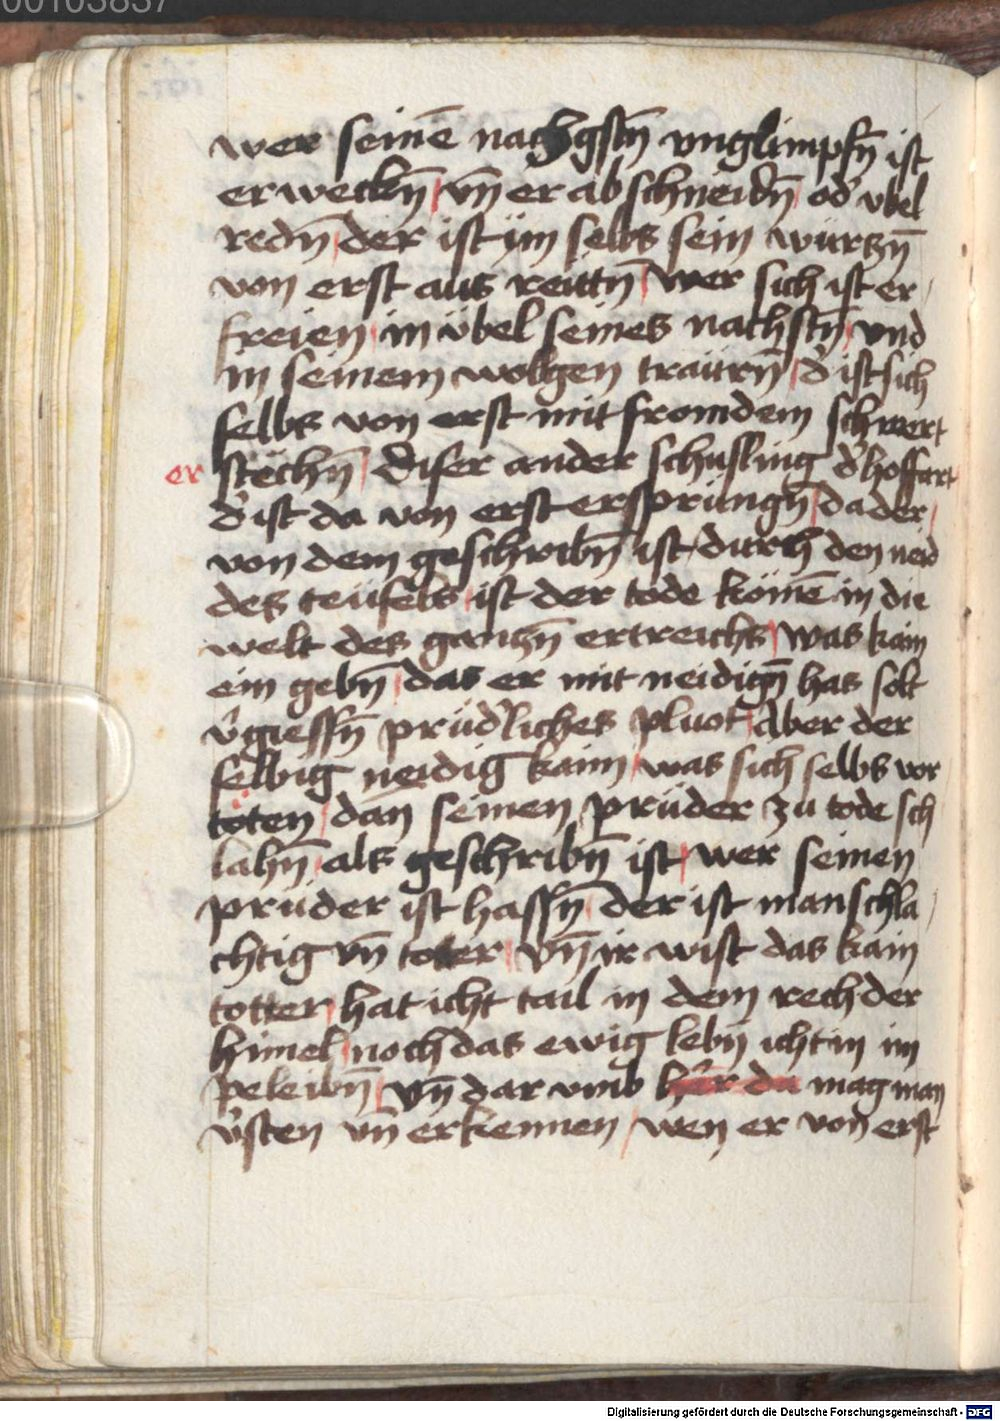 00103837
wer seinē nachgstn̄ vnglimpfn̄ ist
erweckn̄ vn̄ er abschneidn̄ od' vbel
redn̄ der ist im selbs sein würtzn̄
von erst aus reütn̄ wer sich ist er
freien in übel seines nachstn̄ vnd
in seinem wolgen traürn̄ d' ist sich
selbs von erst mit fromdem schwert
er stechn̄ Diser ander schusling d' hoffart
d' ist da von erst ersprungn̄ da der
von dem geschribn̄ ist durch den neid
des teüfels ist der tode kömē in die
welt des gantzn̄ ertreichs was kain
ein gebn̄ das er mit neidign̄ has solt
v'giessn̄ prüd'liches pluot Aber der
selbig neidig kaim was sich selbs vor
töten dan seinen prüder zu tode sch
lahn̄ als geschribn̄ ist wer seinen
prüder ist hassn̄ der ist manschla
chtig vn̄ toter vn̄ ir wist das kain
totter hat icht tail in dem rech der
himel noch das ewig lebn̄ icht in im
peleibn̄ vn̄ dar vmb her da mag man
v'sten vn̄ erkennen wen er von erst
Digitalisierung gefördert durch die Deutsche Forschungsgemeinschaft - DFG